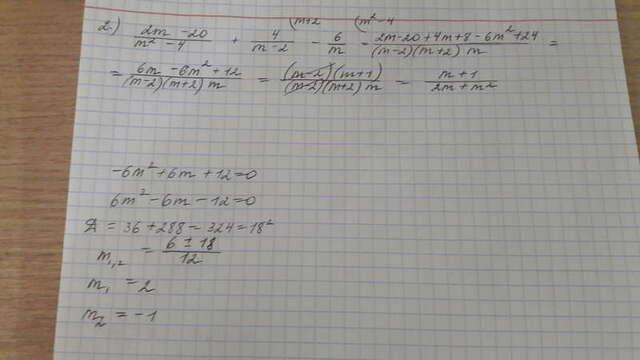 2) (2m-20)/(m²-4) + 4/(m-2) (m+2 - 6/m (m²-4 = (2m-20+4m+8-6m²+24)/((m-2)(m+2)m) =
= (6m-6m²+12)/((m-2)(m+2)m) = ((m-2)(m+1))/((m-2)(m+2)m) = (m+1)/(2m+m²)
-6m²+6m+12=0
6m²-6m-12=0
D=36+288=324=18²
m₁,₂ = (6±18)/12
m₁=2
m₂=-1